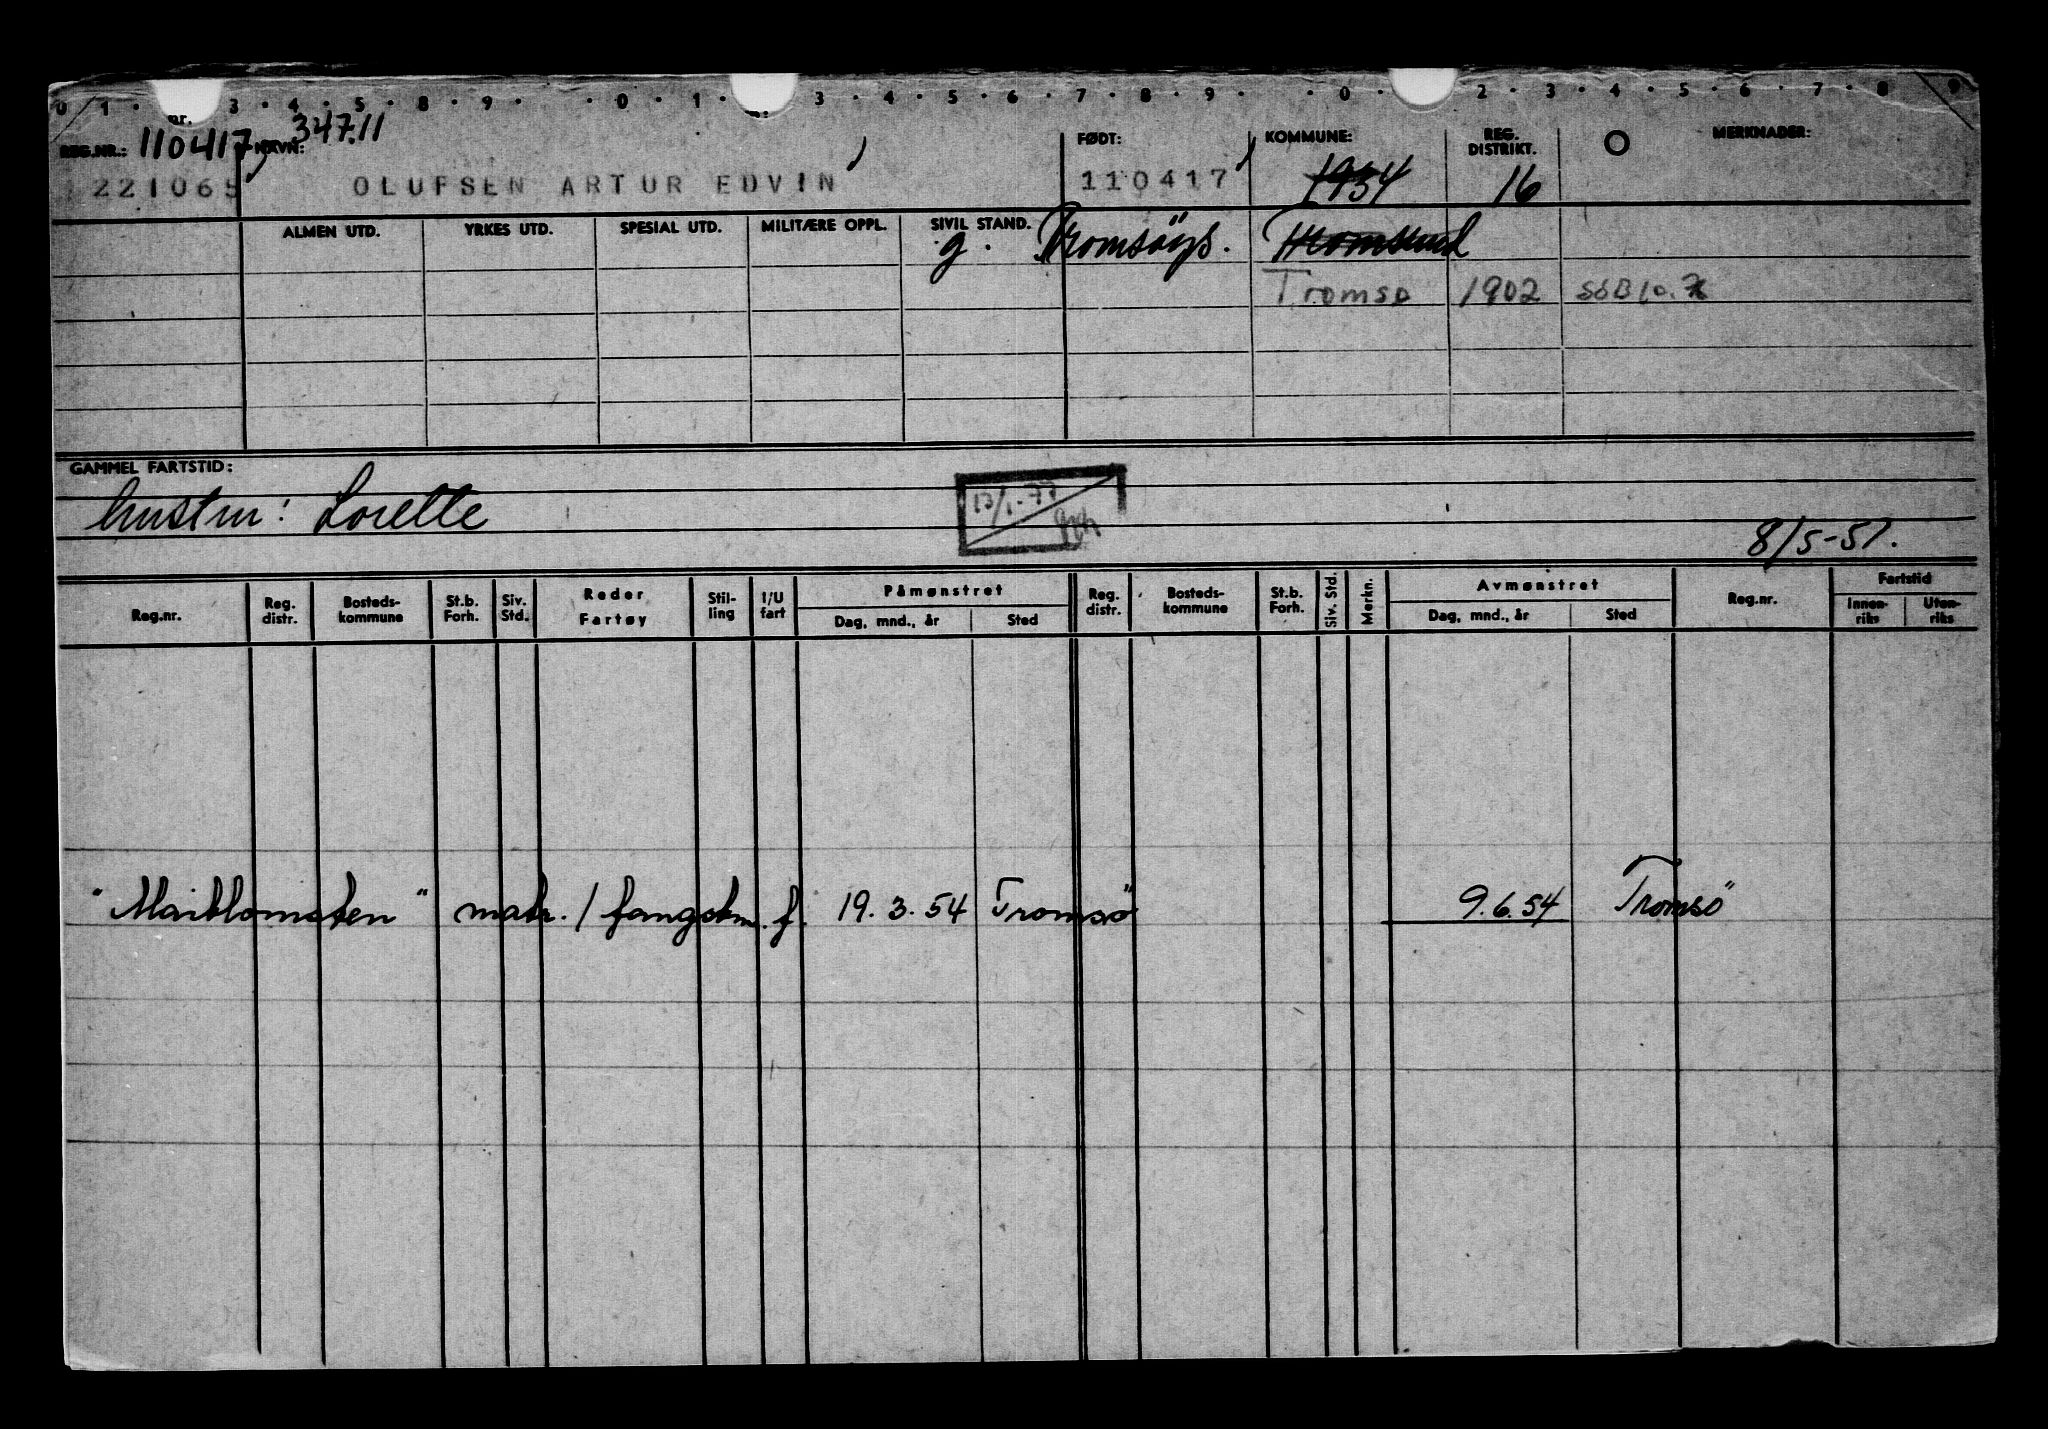 0 1 · 3 · 4 · 5 · 8 · 9 · · 0 · 1 · 3 · 4 · 5 · 6 · 7 · 8 · 9 · · 0 · 2 · 3 · 4 · 5 · 6 · 7 · 8 · 9
nr.
REG.NR.: 110417 NAVN: 347.11 FØDT: KOMMUNE: REG. DISTRIKT. MERKNADER:
221065 OLUFSEN ARTUR EDVIN 110417 1934 16
ALMEN UTD. YRKES UTD. SPESIAL UTD. MILITÆRE OPPL. SIVIL STAND. g. Tromsöys. Tromsund
Tromsø 1902 SSB 10.7
GAMMEL FARTSTID:
hustru: Lorette 13/1-77
8/5-51.
Reg.nr. Reg. distr. Bosteds-kommune St.b. Forh. Siv. Std. Reder Fartøy Stil-ling I/U fart Påmønstret Dag, mnd., år Sted Reg. distr. Bosteds-kommune St.b. Forh. Siv. Std. Merkn. Avmønstret Dag, mnd., år Sted Reg.nr. Fartstid Innen-riks Uten-riks
"Maiblomsten" matr. / fangstm. f. 19.3.54 Tromsö 9.6.54 Tromsö